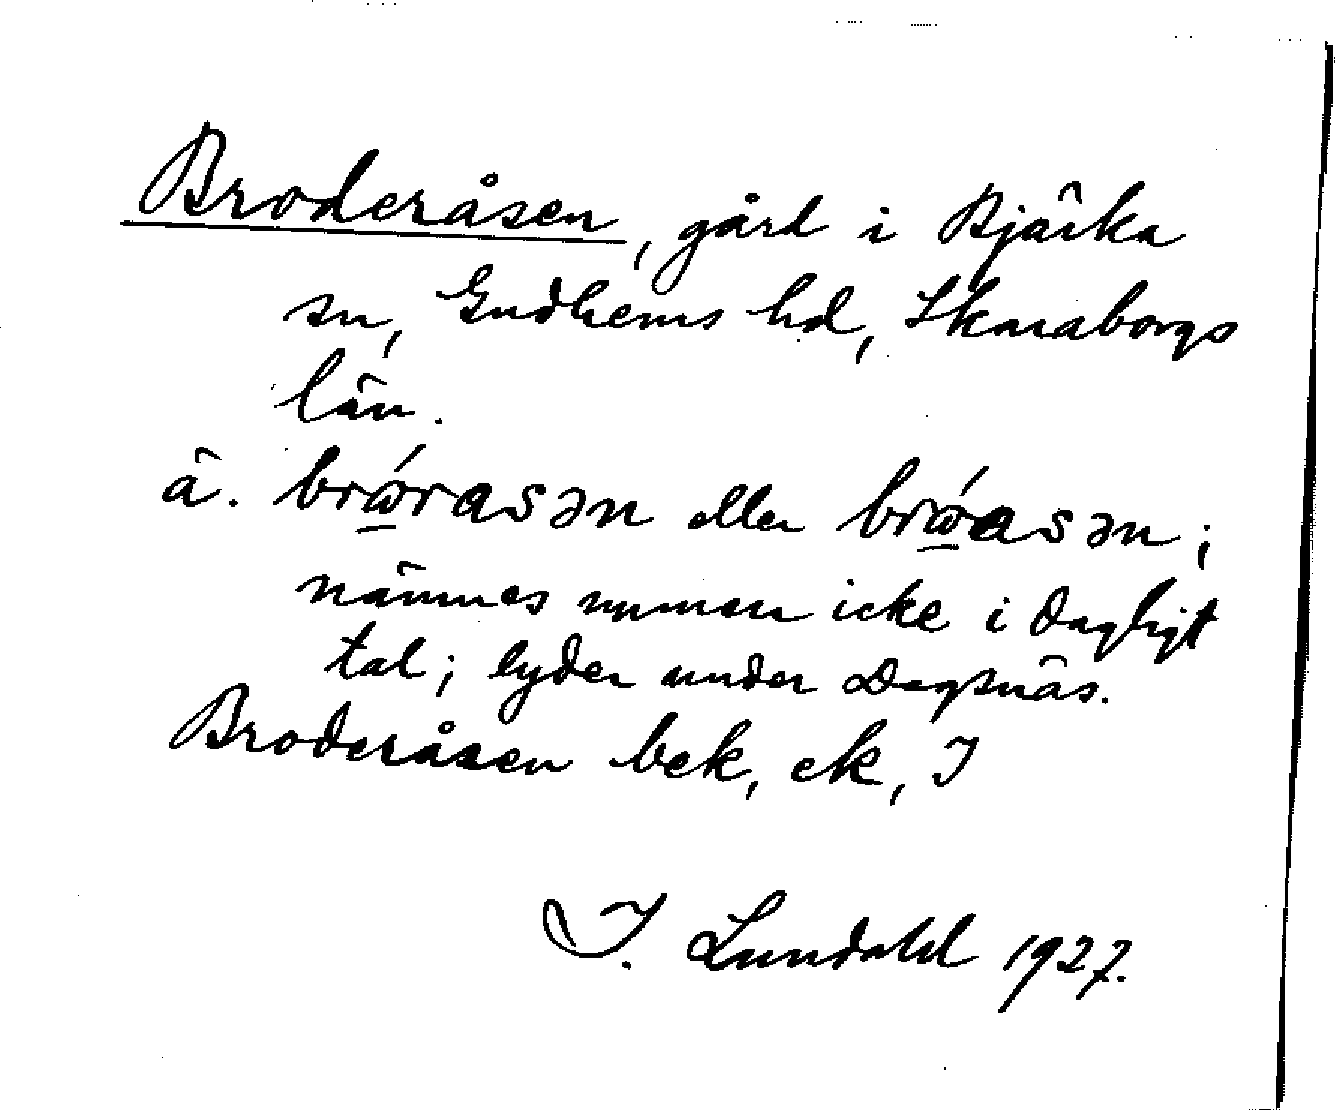 Broderåsen, gård i Bjärka
sn, Gudhems hd, Skaraborgs
län.
ä. brώ̱rasən eller brώ̱asən;
nämnes numera icke i dagligt
tal; lyder under Degsnäs.
Broderåsen bek, ek, J
J. Lundahl 1927.